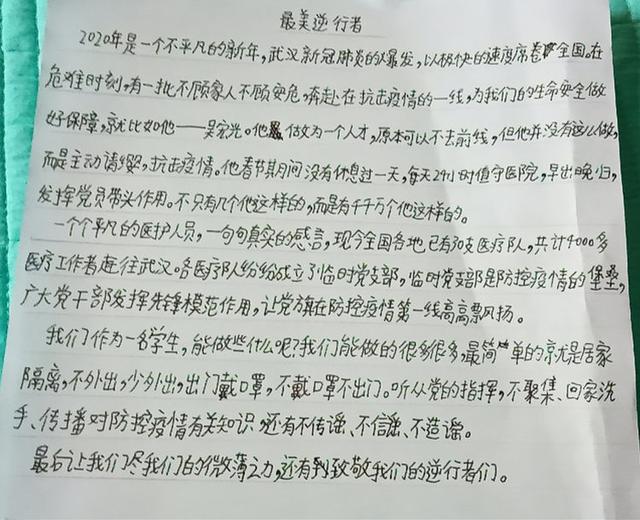 最美逆行者
2020年是一个不平凡的新年,武汉新冠肺炎的爆发,以极快的速度席卷全国。在
危难时刻,有一批不顾家人不顾安危,奔赴在抗击疫情的一线,为我们的生命安全做
好保障,就比如他——吴宏光。他做为一个人才,原本可以不去前线,但他并没有这么做,
而是主动请缨,抗击疫情。他春节期间没有休息过一天,每天24小时值守医院,早出晚归,
发挥党员带头作用。不只有几个他这样的,而是有千千万个他这样的。
一个个平凡的医护人员,一句句真实的感言,现今全国各地已有30支医疗队,共计4000多
医疗工作者赶往武汉。各医疗队纷纷成立了临时党支部,临时党支部是防控疫情的堡垒,
广大党干部发挥先锋模范作用,让党旗在防控疫情第一线高高飘扬。
我们作为一名学生,能做些什么呢?我们能做的很多很多,最简单的就是居家
隔离,不外出,少外出,出门戴口罩,不戴口罩不出门。听从党的指挥,不聚集、回家洗
手、传播对防控疫情有关知识,还有不传谣、不信谣、不造谣。
最后让我们尽我们的微薄之力,还有到致敬我们的逆行者们。